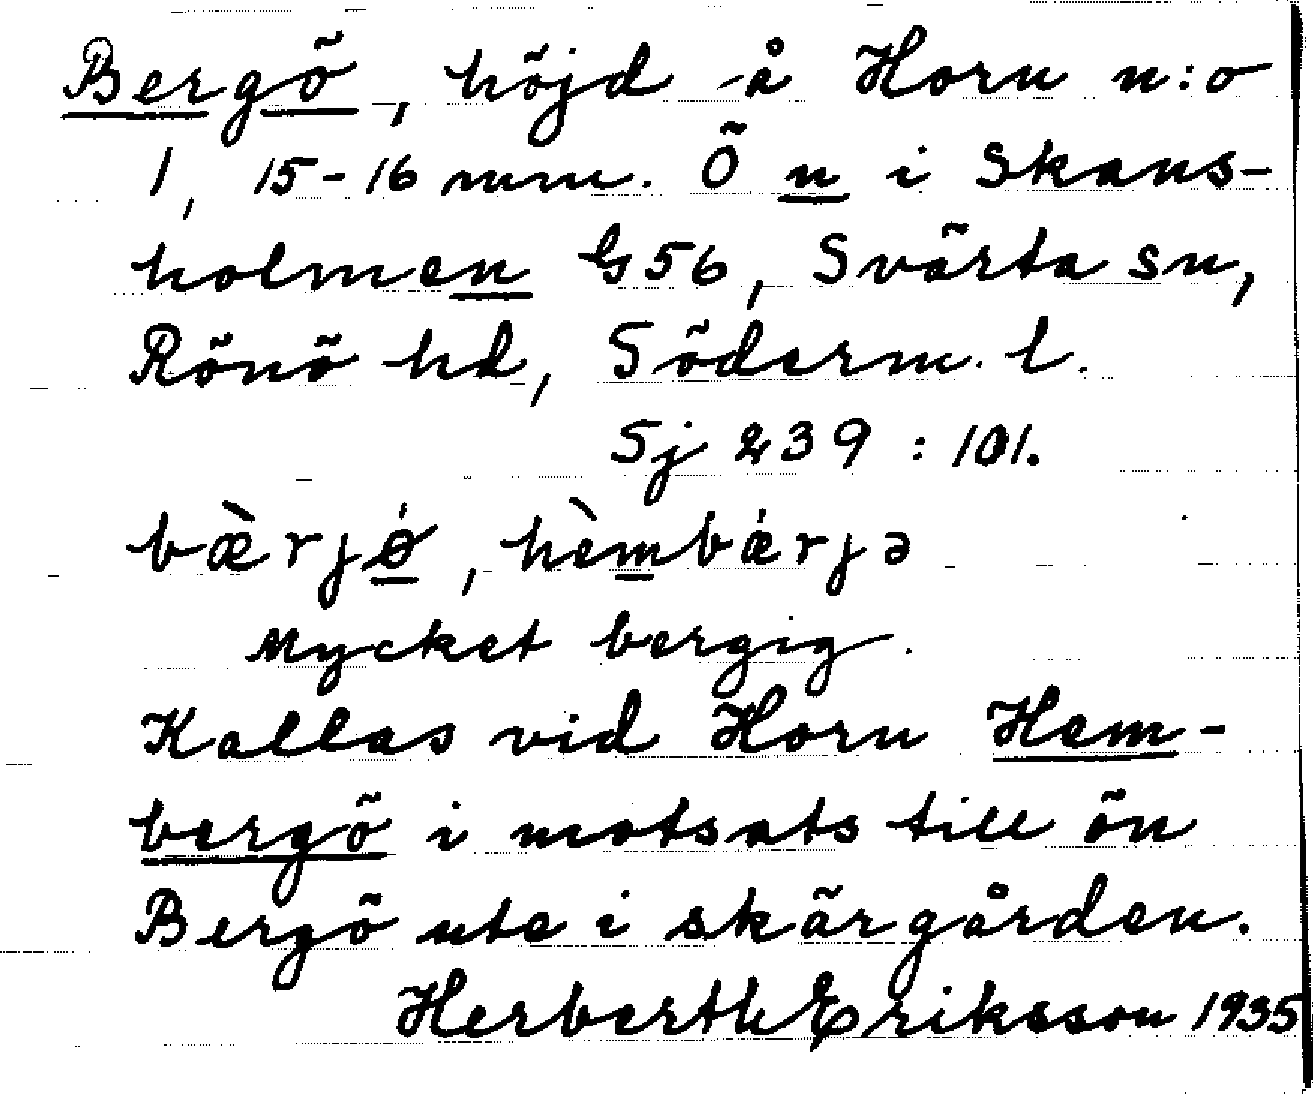 Bergö, höjd å Horn n:o
1, 15-16 mm. Ö n i Skans-
holmen G56, Svärta sn,
Rönö hd, Söderm. l.
Sj 239 : 101.
bæ̀rjǿ, hèmbǽrjə
Mycket bergig.
Kallas vid Horn Hem-
bergö i motsats till ön
Bergö ute i skärgården.
Herberth Eriksson 1935